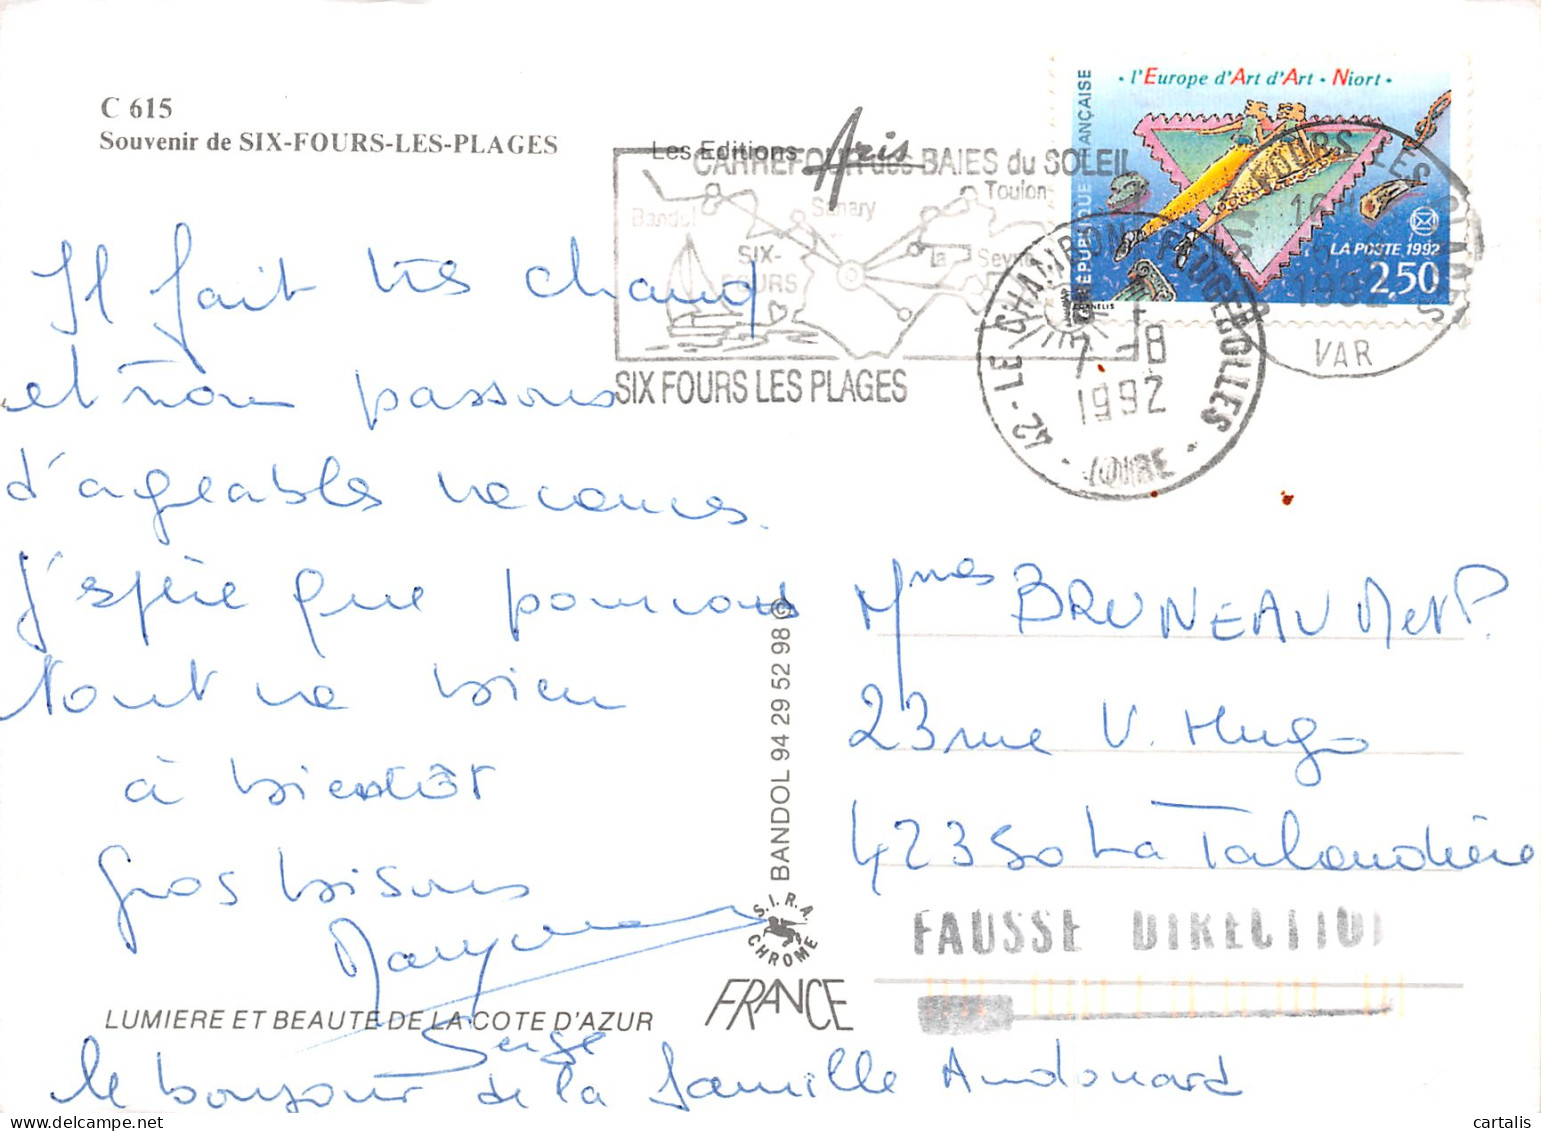 C 615
Souvenir de SIX-FOURS-LES-PLAGES
Les Editions Aris
CARREFOUR des BAIES du SOLEIL
Bandol
Sanary
Toulon
SIX-FOURS
La Seyne
SIX FOURS LES PLAGES
• l'Europe d'Art d'Art • Niort •
RÉPUBLIQUE FRANÇAISE
LA POSTE 1992
2,50
SIX FOURS LES PLAGES
1992
VAR
42 - LE CHAMBON FEUGEROLLES
7 - 8
1992
LOIRE
Il fait très chaud
et nous passons
d'agréables vacances.
J'espère que pour vous
tout va bien
à bientôt
Gros bisous
Serge
le bonjour de la famille Audouard
BANDOL 94 29 52 98 ©
S.I.R.A. CHROME
FRANCE
LUMIERE ET BEAUTE DE LA COTE D'AZUR
Mmes BRUNEAU M et P.
23 rue V. Hugo
42350 La Talaudière
FAUSSE DIRECTION
cartalis
delcampe.net